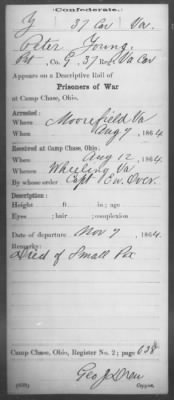 Confederate.
Y 37 Cav Va.
Peter Young
Pvt, Co. G, 37 Reg Va Cav
Appears on a Descriptive Roll of
Prisoners of War
at Camp Chase, Ohio.
Arrested:
Where Moorefield Va
When Aug 7, 1864
Received at Camp Chase, Ohio:
When Aug 12, 1864
Whence Wheeling Va
By whose order Capt
Description:
Height ft. in; age
Eyes ; hair ; complexion
Date of departure Nov 7, 1864.
Remarks:
Died of Small Pox
Camp Chase, Ohio, Register No. 2; page 638
Geo J Drew
(639) Copyist.